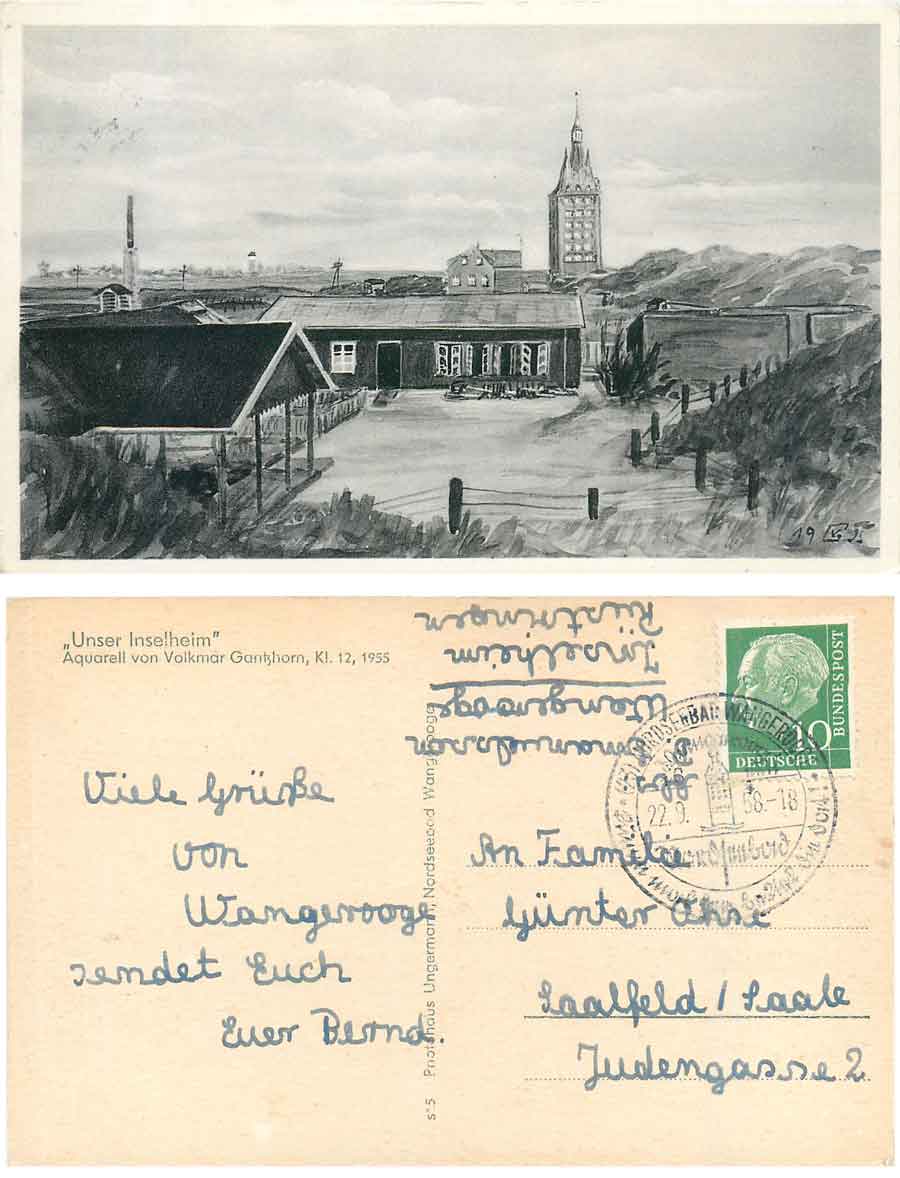 19 VG 55
„Unser Inselheim"
Aquarell von Volkmar Gantzhorn, Kl. 12, 1955
Viele Grüße
von
Wangerooge
sendet Euch
Euer Bernd.
S 5 Photohaus Ungermann, Nordseebad Wangerooge
Wangerooge
Inselheim
Rüstringen
DEUTSCHE
BUNDESPOST
10
NORDSEEBAD WANGEROOGE
22.9. 58.-18
An Familie
Günter Ahse
Saalfeld / Saale
Judengasse 2